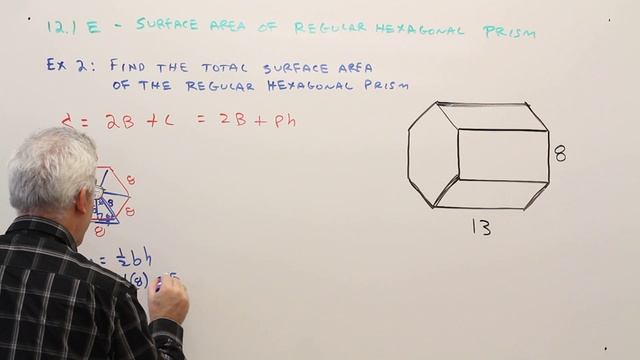 12.1 E - SURFACE AREA OF REGULAR HEXAGONAL PRISM
EX 2: FIND THE TOTAL SURFACE AREA
OF THE REGULAR HEXAGONAL PRISM
S = 2B + L = 2B + Ph
8
8
8
8
8
13
= ½bh
(8)